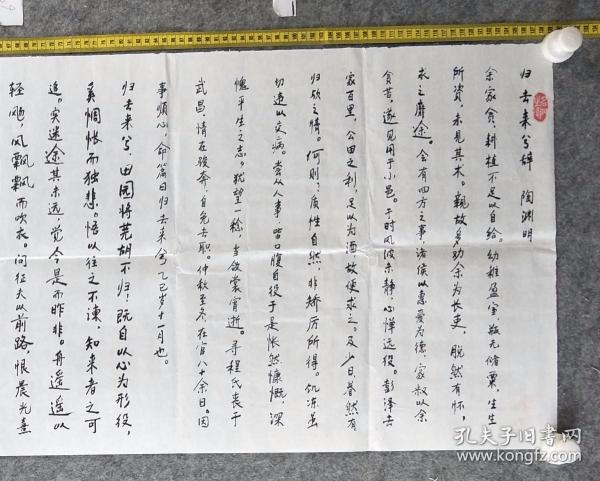 归去来兮辞 陶渊明
余家贫,耕植不足以自给。幼稚盈室,瓶无储粟,生生
所资,未见其术。亲故多劝余为长吏,脱然有怀,
求之靡途。会有四方之事,诸侯以惠爱为德,家叔以余
贫苦,遂见用于小邑。于时风波未静,心惮远役。彭泽去
家百里,公田之利,足以为酒,故便求之。及少日,眷然有
归欤之情。何则?质性自然,非矫厉所得。饥冻虽
切,违以交病。尝从人事,皆口腹自役于是怅然慷慨,深
愧平生之志。犹望一稔,当敛裳宵逝。寻程氏丧于
武昌,情在骏奔,自免去职。仲秋至冬,在官八十余日。因
事顺心,命篇曰归去来兮乙巳岁十一月也。
归去来兮,田园将芜胡不归!既自以心为形役,
奚惆怅而独悲。悟以往之不谏,知来者之可
追。实迷途其未远,觉今是而昨非。舟遥遥以
轻飏,风飘飘而吹衣。问征夫以前路,恨晨光熹
孔夫子旧书网
www.kongfz.com